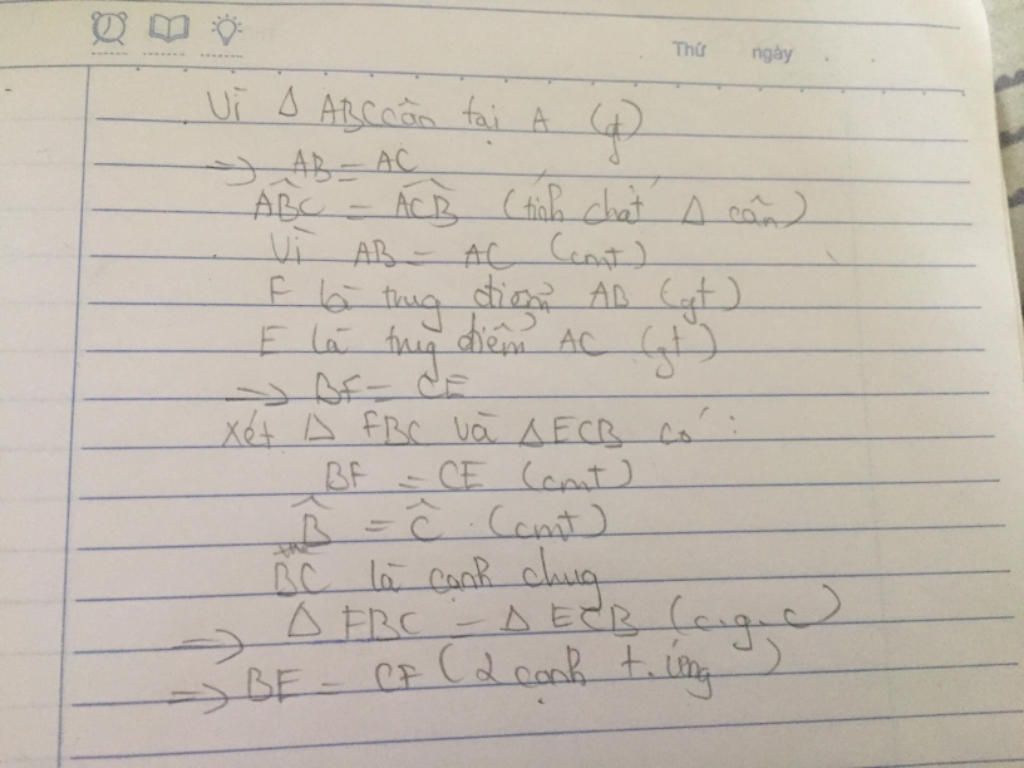 Thứ ngày
Vì Δ ABC cân tại A (gt)
=> AB = AC
ABC = ACB (tính chất Δ cân)
Vì AB = AC (cmt)
F là trug điểm AB (gt)
E là trug điểm AC (gt)
=> BF = CE
Xét Δ FBC và Δ ECB có :
BF = CE (cmt)
B̂ = Ĉ (cmt)
BC là cạnh chug
=> Δ FBC = Δ ECB (c.g.c)
=> BE = CF (2 cạnh t.ứng)